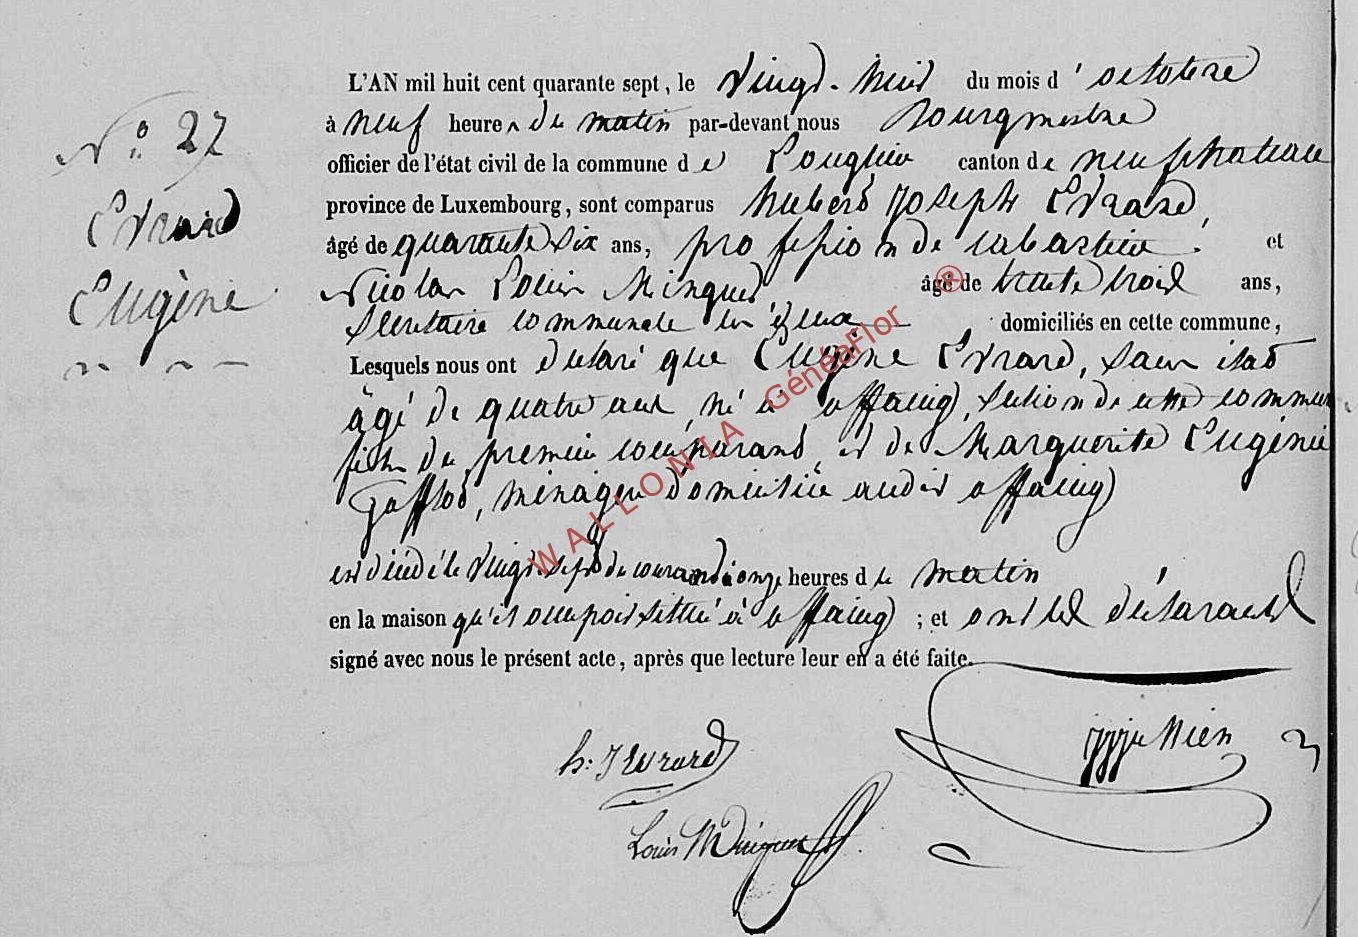 L'AN mil huit cent quarante sept, le vingt-neuf du mois d'octobre
N° 27
à neuf heures du matin par-devant nous Bourgmestre
officier de l'état civil de la commune de Louglier canton de neufchateau
Evrard
province de Luxembourg, sont comparus Hubert Joseph Evrard,
âgé de quarante six ans, profession de cabartier et
Eugène
Nicolas Louis Minguet âgé de trente trois ans,
secretaire communale domiciliés en cette commune,
Lesquels nous ont declaré que Eugène Evrard, sans état
âgé de quatre ans, né à offaing, section de cette commune
fils du premier comparant et de Marguerite Eugénie
Gofflot, ménagere domiciliée audit offaing
est décédé le vingt-sept du courant à onze heures du matin
en la maison qu'il occupoit située à offaing ; et ont les déclarants
signé avec nous le présent acte, après que lecture leur en a été faite.
h: J Evrard
Louis Minguet
WALLONIA GénéaFlor ®